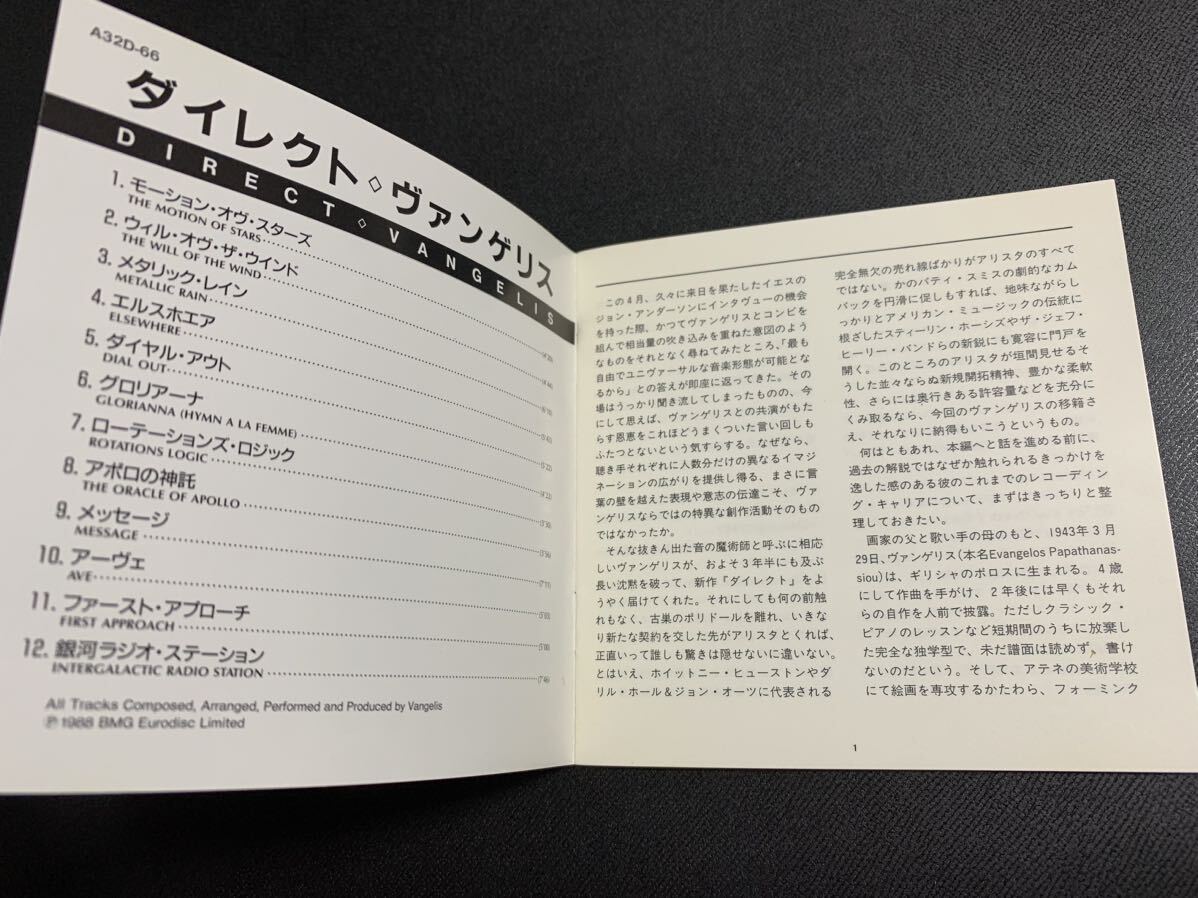 A32D-66
ダイレクト◇ヴァンゲリス
DIRECT◇VANGELIS
1. モーション・オヴ・スターズ
THE MOTION OF STARS
2. ウィル・オヴ・ザ・ウインド
THE WILL OF THE WIND
3. メタリック・レイン
METALLIC RAIN
4. エルスホエア
ELSEWHERE
5. ダイヤル・アウト
DIAL OUT
6. グロリアーナ
GLORIANNA (HYMN A LA FEMME)
7. ローテーションズ・ロジック
ROTATIONS LOGIC
8. アポロの神託
THE ORACLE OF APOLLO
9. メッセージ
MESSAGE
10. アーヴェ
AVE
11. ファースト・アプローチ
FIRST APPROACH
12. 銀河ラジオ・ステーション
INTERGALACTIC RADIO STATION
All Tracks Composed, Arranged, Performed and Produced by Vangelis
Ⓟ1988 BMG Eurodisc Limited
この4月、久々に来日を果たしたイエスの
ジョン・アンダーソンにインタヴューの機会
を持った際、かつてヴァンゲリスとコンビを
組んで相当量の吹き込みを重ねた意図のよう
なものをそれとなく尋ねてみたところ、「最も
自由でユニヴァーサルな音楽形態が可能とな
るから」との答えが即座に返ってきた。その
場はうっかり聞き流してしまったものの、今
にして思えば、ヴァンゲリスとの共演がもた
らす恩恵をこれほどうまくついた言い回しも
ふたつとないという気すらする。なぜなら、
聴き手それぞれに人数分だけの異なるイマジ
ネーションの広がりを提供し得る、まさに言
葉の壁を越えた表現や意志の伝達こそ、ヴァ
ンゲリスならではの特異な創作活動そのもの
ではなかったか。
そんな抜きん出た音の魔術師と呼ぶに相応
しいヴァンゲリスが、およそ3年半にも及ぶ
長い沈黙を破って、新作『ダイレクト』をよ
うやく届けてくれた。それにしても何の前触
れもなく、古巣のポリドールを離れ、いきな
り新たな契約を交した先がアリスタとくれば、
正直いって誰しも驚きは隠せないに違いない。
とはいえ、ホイットニー・ヒューストンやダ
リル・ホール&ジョン・オーツに代表される
完全無欠の売れ線ばかりがアリスタのすべて
ではない。かのパティ・スミスの劇的なカム
バックを円滑に促しもすれば、地味ながらし
っかとアメリカン・ミュージックの伝統に
根ざしたスティーリン・ホーシズやザ・ジェフ・
ヒーリー・バンドらの新鋭にも寛容に門戸を
開く。このところのアリスタが垣間見せるそ
うした並々ならぬ新規開拓精神、豊かな柔軟
性、さらには奥行きある許容量などを充分に
くみ取るなら、今回のヴァンゲリスの移籍さ
え、それなりに納得もいこうというもの。
何はともあれ、本編へと話を進める前に、
過去の解説ではなぜか触れられるきっかけを
逸した感のある彼のこれまでのレコーディン
グ・キャリアについて、まずはきっちりと整
理しておきたい。
画家の父と歌い手の母のもと、1943年3月
29日、ヴァンゲリス(本名Evangelos Papathanas-
siou)は、ギリシャのボロスに生まれる。4歳
にして作曲を手がけ、2年後には早くもそれ
らの自作を人前で披露。ただしクラシック・
ピアノのレッスンなど短期間のうちに放棄し
た完全な独学型で、未だ譜面は読めず、書け
ないのだという。そして、アテネの美術学校
にて絵画を専攻するかたわら、フォーミンク
1